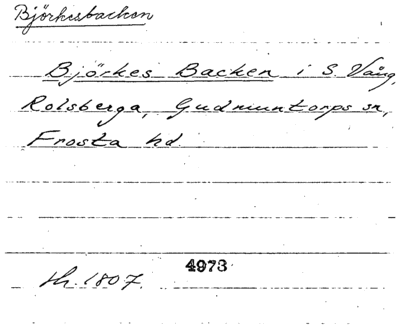 Björkesbacken
Björkes Backen i S. Vång,
Rolsberga, Gudmuntorps sn,
Frosta hd
4973
th. 1807.